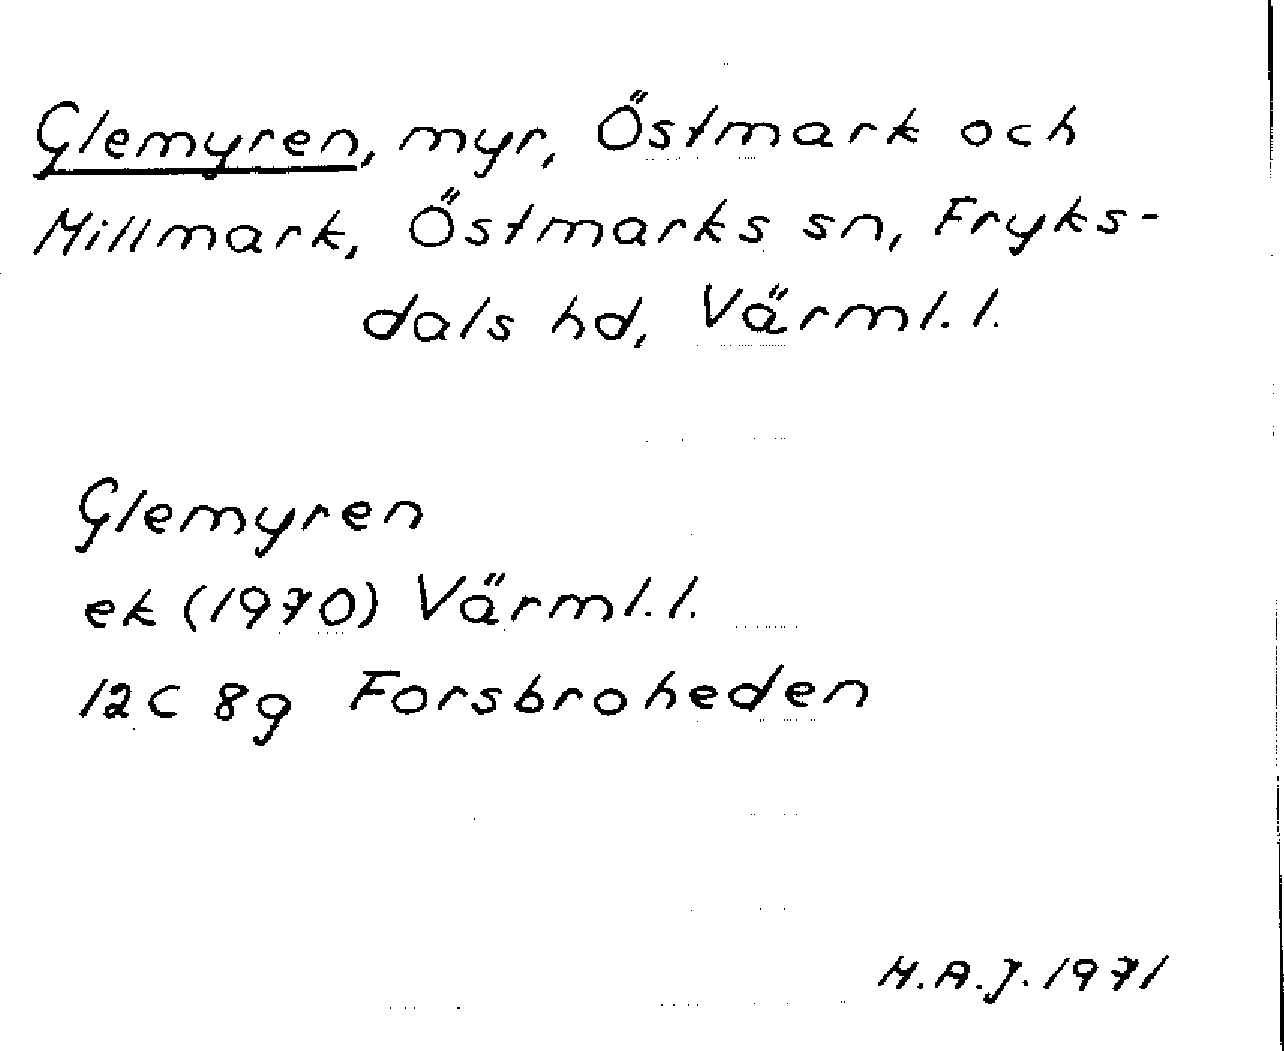 Glemyren, myr, Östmark och
Millmark, Östmarks sn, Fryks-
dals hd, Värml. l.
Glemyren
ek (1970) Värml. l.
12C 8g Forsbroheden
M.A.J. 1971